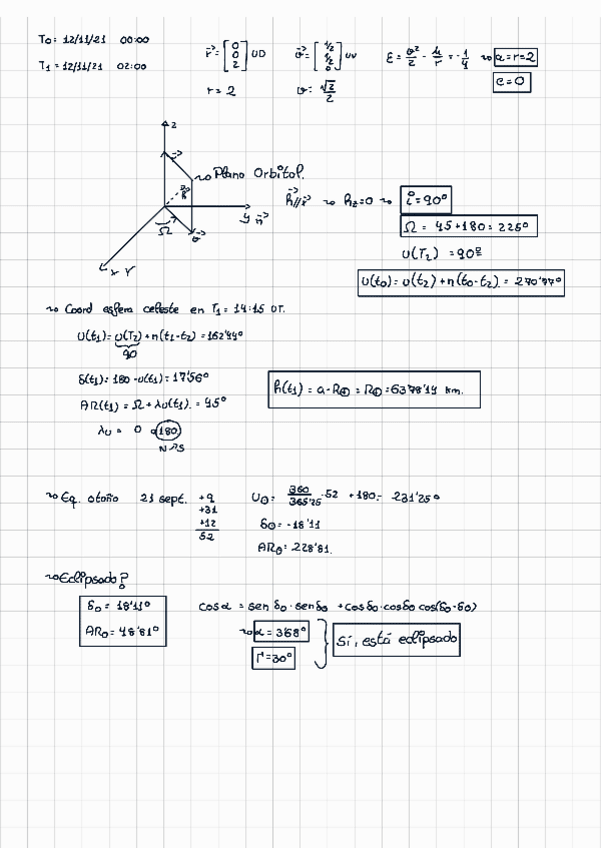 T₀ = 12/11/21 00:00
T₁ = 12/11/21 02:00
r⃗ = [0 0 2] UD
r = 2
v⃗ = [1/2 1/2 0] UV
v = √2/2
ε = v²/2 - μ/r = -1/4 ⇝ a = r = 2
e = 0
z
r⃗
⇝ Plano Orbital.
h⃗
Ω
v⃗
y
n⃗
x γ
h⃗ // x⃗ ⇝ h_z = 0 ⇝ i = 90°
Ω = 45 + 180 = 225°
U(T₂) = 90º
U(t₀) = U(t₂) + n(t₀ - t₂) = 270'77°
⇝ Coord esfera celeste en T₁ = 14:15 UT.
U(t₁) = U(T₂) + n(t₁ - t₂) = 162'44°
90
δ(t₁) = 180 - U(t₁) = 17'56°
AR(t₁) = Ω + λu(t₁) = 45°
λu = 0 ó 180
N→S
h(t₁) = a - R⊕ = R⊕ = 6378'14 km.
⇝ Eq. otoño 21 sept. +9
+31
+12
52
U⊙ = 360/365'25 · 52 + 180 = 231'25°
δ⊙ = -18'11
AR⊙ = 228'81.
⇝ Eclipsado?
δ₀ = 18'11°
AR₀ = 48'81°
cos α = sen δ₀ · sen δ₀ + cos δ₀ · cos δ₀ cos(δ₀ - δ₀)
⇝ α = 3'68°
Γ = 30°
Sí, está eclipsado